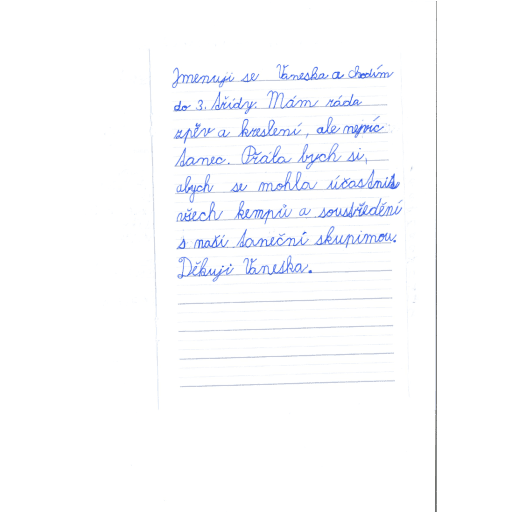 Jmenuji se Vaneska a chodím
do 3. třídy. Mám ráda
zpěv a kreslení, ale nejvíc
tanec. Přála bych si,
abych se mohla účastnit
všech kempů a soustředění
s naší taneční skupinou.
Děkuji Vaneska.